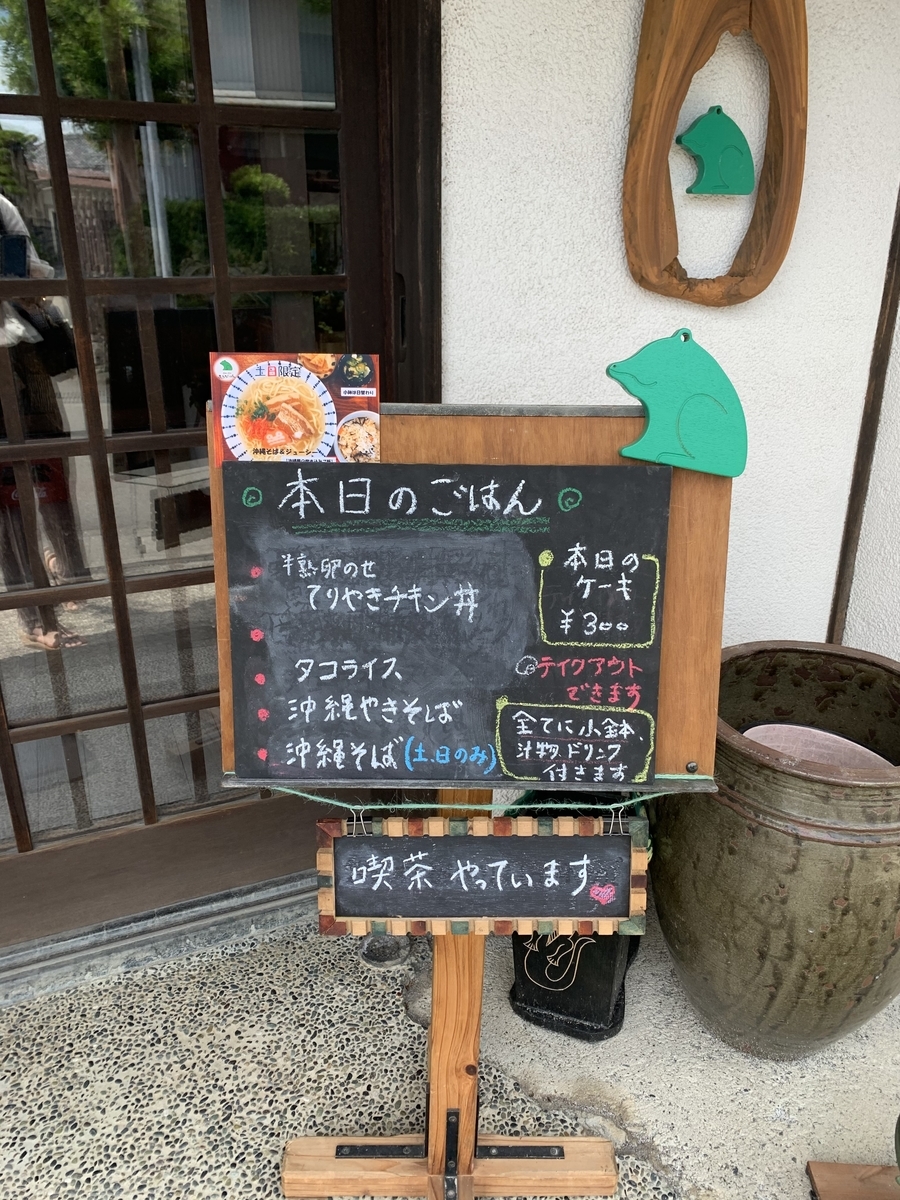 土日限定
小鉢は日替わり
沖縄そば&ジューシー
本日のごはん
半熟卵のせ
てりやきチキン丼
タコライス
沖縄やきそば
沖縄そば(土、日のみ)
本日の
ケーキ
¥300
テイクアウト
できます
全てに小鉢、
汁物、ドリンク
付きます
喫茶 やっています